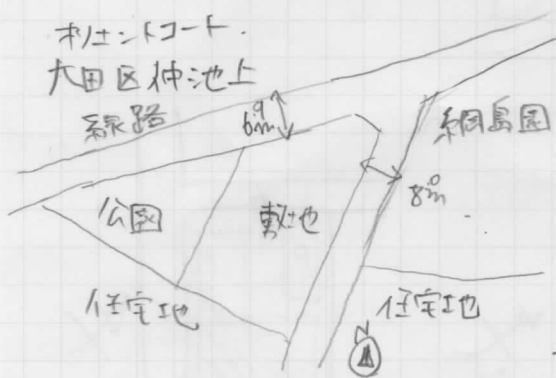 オリエントコート.
大田区仲池上
線路
6.9m
綱島園
8.0m
公園
敷地
住宅地
住宅地
N